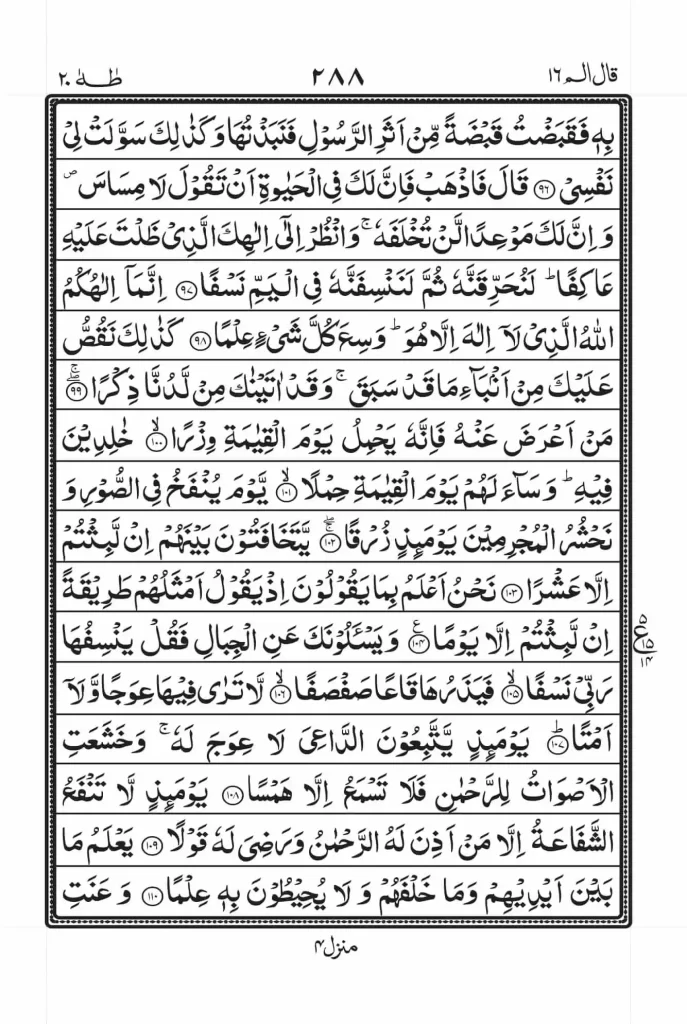 قال الم ١٦
٢٨٨
طٰهٰ ٢٠
بِهٖ فَقَبَضْتُ قَبْضَةً مِّنْ اَثَرِ الرَّسُوْلِ فَنَبَذْتُهَا وَكَذٰلِكَ سَوَّلَتْ لِیْ
نَفْسِیْ ۝٩٦ قَالَ فَاذْهَبْ فَاِنَّ لَكَ فِی الْحَیٰوةِ اَنْ تَقُوْلَ لَا مِسَاسَ ۪
وَ اِنَّ لَكَ مَوْعِدًا لَّنْ تُخْلَفَهٗ ۚ وَانْظُرْ اِلٰۤی اِلٰهِكَ الَّذِیْ ظَلْتَ عَلَیْهِ
عَاكِفًا ؕ لَنُحَرِّقَنَّهٗ ثُمَّ لَنَنْسِفَنَّهٗ فِی الْیَمِّ نَسْفًا ۝٩٧ اِنَّمَاۤ اِلٰهُكُمُ
اللّٰهُ الَّذِیْ لَاۤ اِلٰهَ اِلَّا هُوَ ؕ وَسِعَ كُلَّ شَیْءٍ عِلْمًا ۝٩٨ كَذٰلِكَ نَقُصُّ
عَلَیْكَ مِنْ اَنْۢبَآءِ مَا قَدْ سَبَقَ ۚ وَقَدْ اٰتَیْنٰكَ مِنْ لَّدُنَّا ذِكْرًا ۝٩٩ۖۚ
مَنْ اَعْرَضَ عَنْهُ فَاِنَّهٗ یَحْمِلُ یَوْمَ الْقِیٰمَةِ وِزْرًا ۝١٠٠ۙ خٰلِدِیْنَ
فِیْهِ ؕ وَسَآءَ لَهُمْ یَوْمَ الْقِیٰمَةِ حِمْلًا ۝١٠١ۙ یَّوْمَ یُنْفَخُ فِی الصُّوْرِ وَ
نَحْشُرُ الْمُجْرِمِیْنَ یَوْمَىِٕذٍ زُرْقًا ۝١٠٢ۖۚ یَّتَخَافَتُوْنَ بَیْنَهُمْ اِنْ لَّبِثْتُمْ
اِلَّا عَشْرًا ۝١٠٣ نَحْنُ اَعْلَمُ بِمَا یَقُوْلُوْنَ اِذْ یَقُوْلُ اَمْثَلُهُمْ طَرِیْقَةً
اِنْ لَّبِثْتُمْ اِلَّا یَوْمًا ۝١٠٤ۧ وَیَسْـَٔلُوْنَكَ عَنِ الْجِبَالِ فَقُلْ یَنْسِفُهَا
رَبِّیْ نَسْفًا ۝١٠٥ۙ فَیَذَرُهَا قَاعًا صَفْصَفًا ۝١٠٦ۙ لَّا تَرٰی فِیْهَا عِوَجًا وَّلَاۤ
اَمْتًا ۝١٠٧ؕ یَوْمَىِٕذٍ یَّتَّبِعُوْنَ الدَّاعِیَ لَا عِوَجَ لَهٗ ۚ وَخَشَعَتِ
الْاَصْوَاتُ لِلرَّحْمٰنِ فَلَا تَسْمَعُ اِلَّا هَمْسًا ۝١٠٨ یَوْمَىِٕذٍ لَّا تَنْفَعُ
الشَّفَاعَةُ اِلَّا مَنْ اَذِنَ لَهُ الرَّحْمٰنُ وَرَضِیَ لَهٗ قَوْلًا ۝١٠٩ یَعْلَمُ مَا
بَیْنَ اَیْدِیْهِمْ وَمَا خَلْفَهُمْ وَ لَا یُحِیْطُوْنَ بِهٖ عِلْمًا ۝١١٠ وَ عَنَتِ
ع
منزل ٤